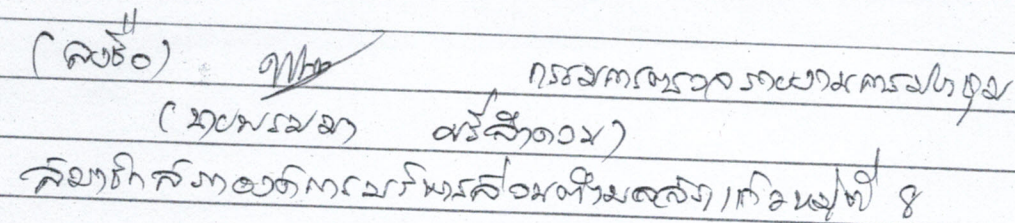 (ลงชื่อ) กรรมการตรวจรายงานการประชุม
(นายพรมมา ศรีลำดวน)
สมาชิกสภาองค์การบริหารส่วนตำบล หมู่ที่ 8